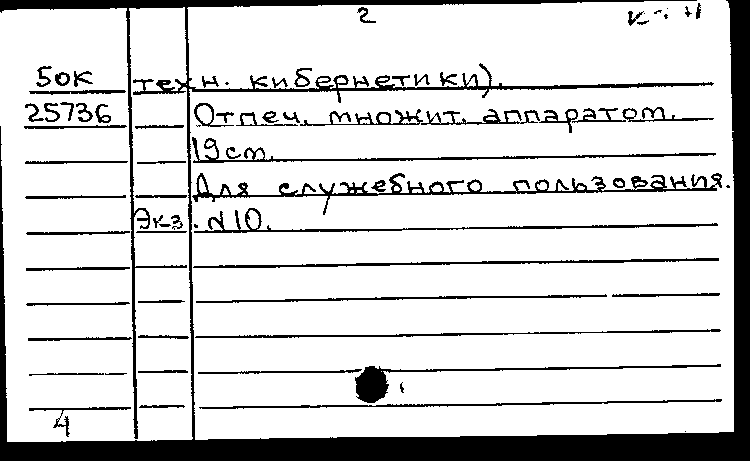 2
50к техн. кибернетики).
25736 Отпеч. множит. аппаратом.
19 cm.
Для служебного пользования.
Экз. N10.
4